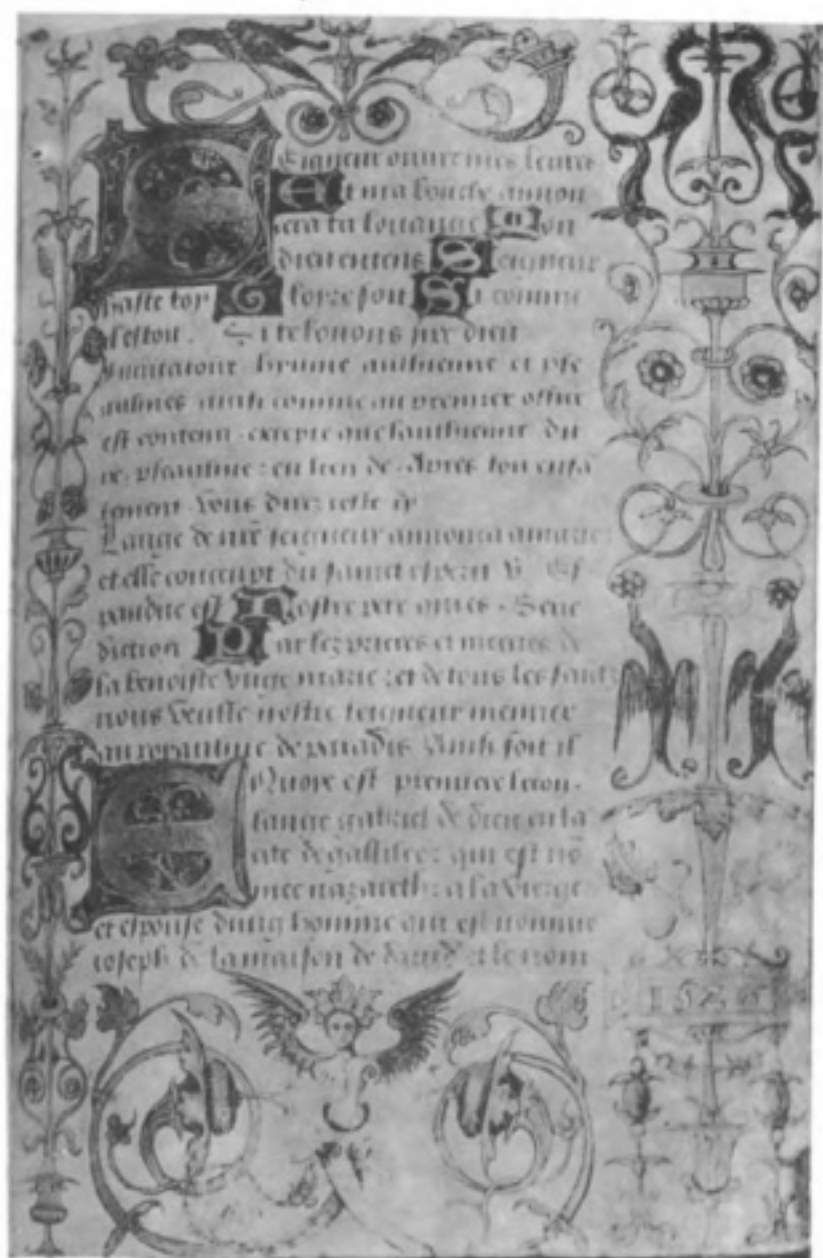 Seigneur ouvre mes leures
Et ma bouche annon
cera ta louange Mon
dieu entens Seigneur
haste toy Gloire soit Si comme
lestoit. Si te louons sire dieu
Invitatoire. hymne anthienne et pse
aulmes ainsi comme au premier office
est contenu. excepte que lanthienne du
pseaulme: en lieu de. Apres ton enfā
tement. Vous direz celle
Lange de nr̄e seigneur annonca a marie:
et elle conceupt du sainct esperit
pandue est Nostre pere Bene
diction Par les prieres et merites de
la benoiste vierge marie: et de tous les sainctz
nous veulle nostre seigneur mener
au royaulme de paradis Ainsi soit il
Enuoye est premiere lecon.
lange gabriel de dieu en la
cite de gallilee: qui est nō
mee nazareth: a la vierge
et espouse dung homme qui est nomme
ioseph de la maison de david et le nom